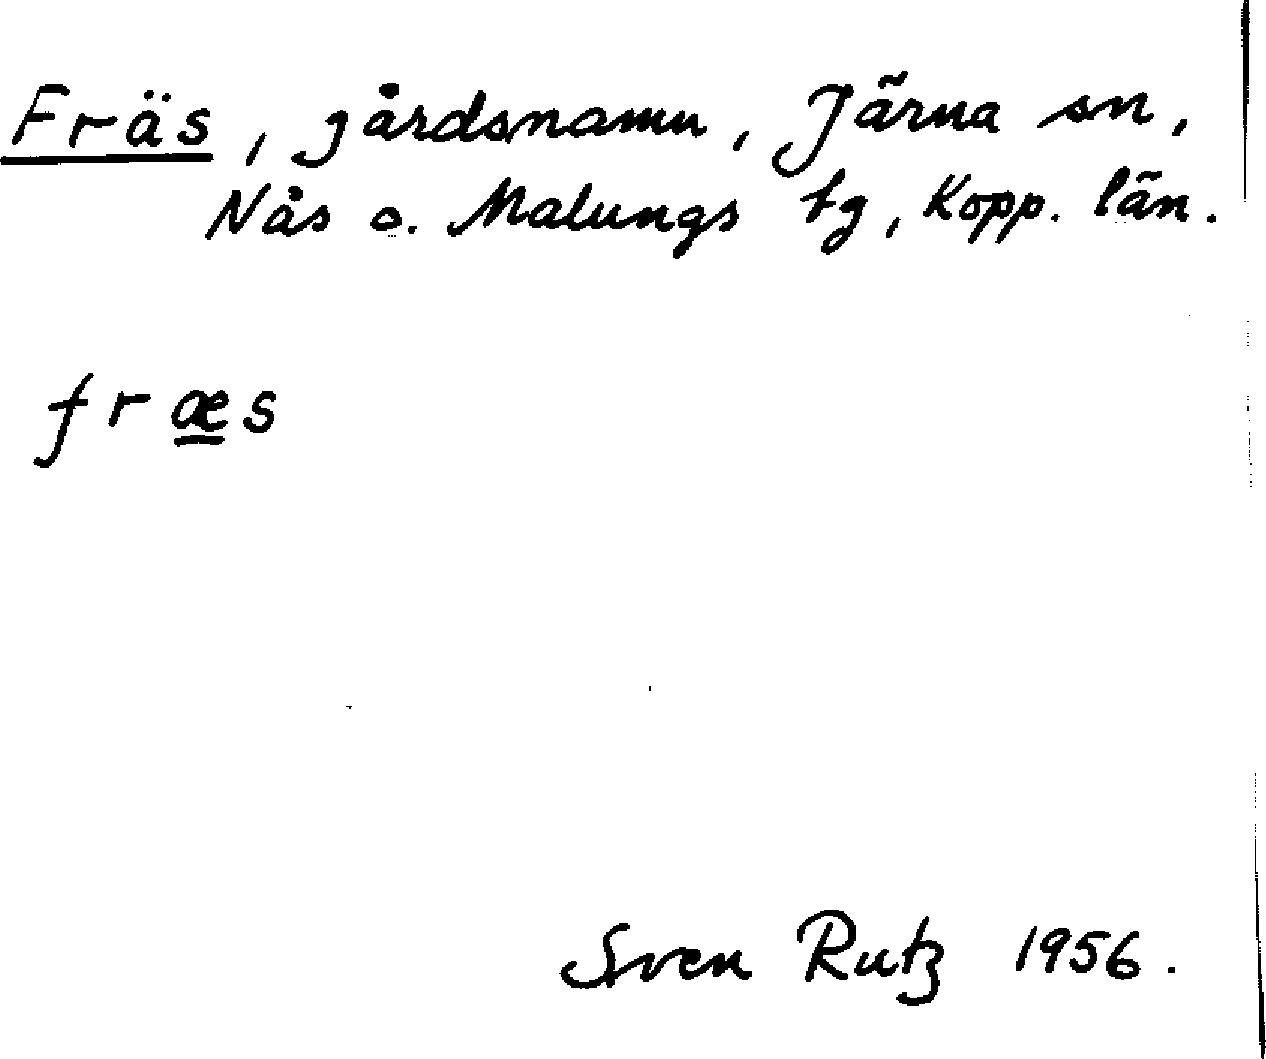 Fräs, gårdsnamn, Järna sn,
Nås o. Malungs tg, Kopp. län.
fræs
Sven Rutz 1956.